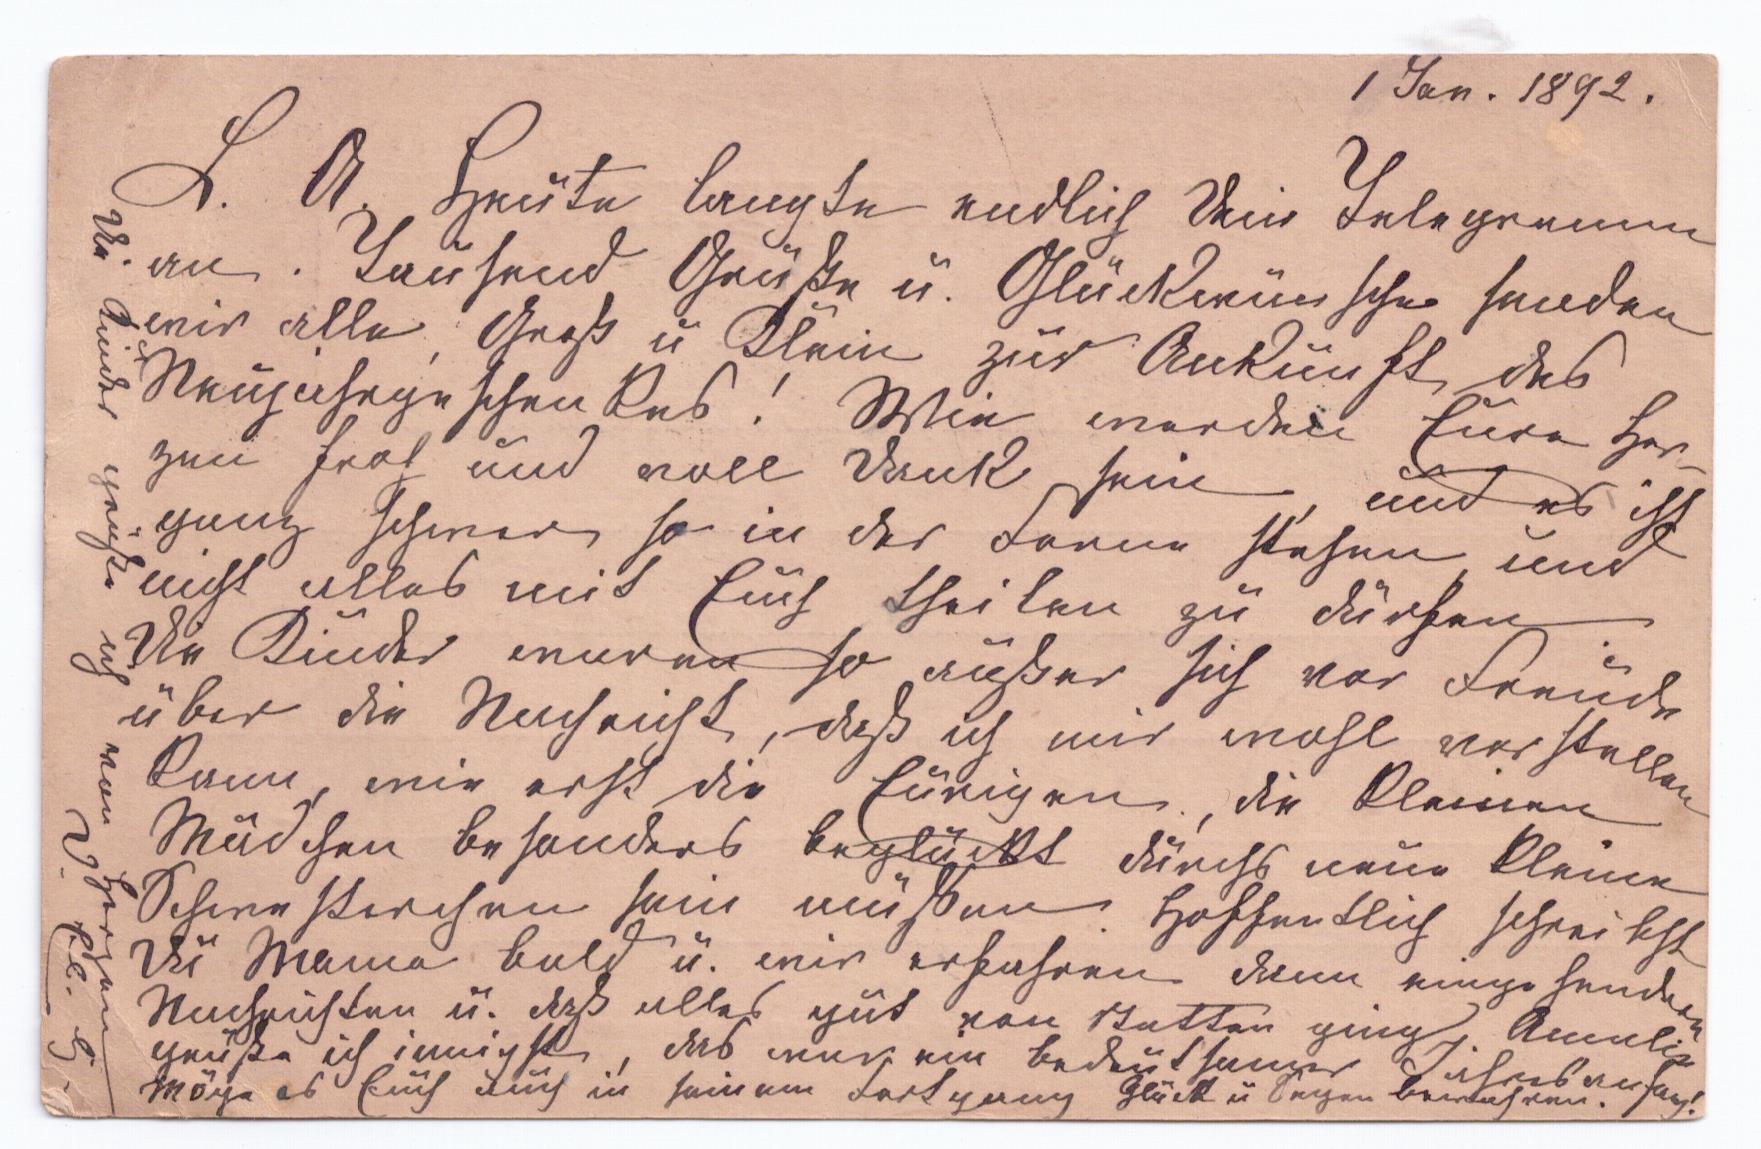 1 Jan. 1892.
L. A. Heute langte endlich Dein Telegramm
an. Tausend Grüße u. Glückwünsche senden
wir alle, Groß u Klein zur Ankunft des
Neujahrsgeschenkes! Wie werden Eure Her-
zen froh und voll Dank sein, und es ist
ganz schwer so in der Ferne stehen und
nicht alles mit Euch theilen zu dürfen
Die Kinder waren so außer sich vor Freude
über die Nachricht, daß ich mir wohl vorstellen
kann, wie erst die Eurigen, die kleinen
Mädchen besonders beglückt durchs neue kleine
Schwesterchen sein müßen. Hoffentlich schreibst
Du Mama bald u. wir erfahren dann eingehendere
Nachrichten u. daß alles gut von statten ging. Amalie
grüße ich innigst, das war ein bedeutsamer Jahresanfang!
Möge es Euch auch in seinem Fortgang Glück u Segen bewahren.
Die Kinder grüße ich von Herzen
D. El. G.